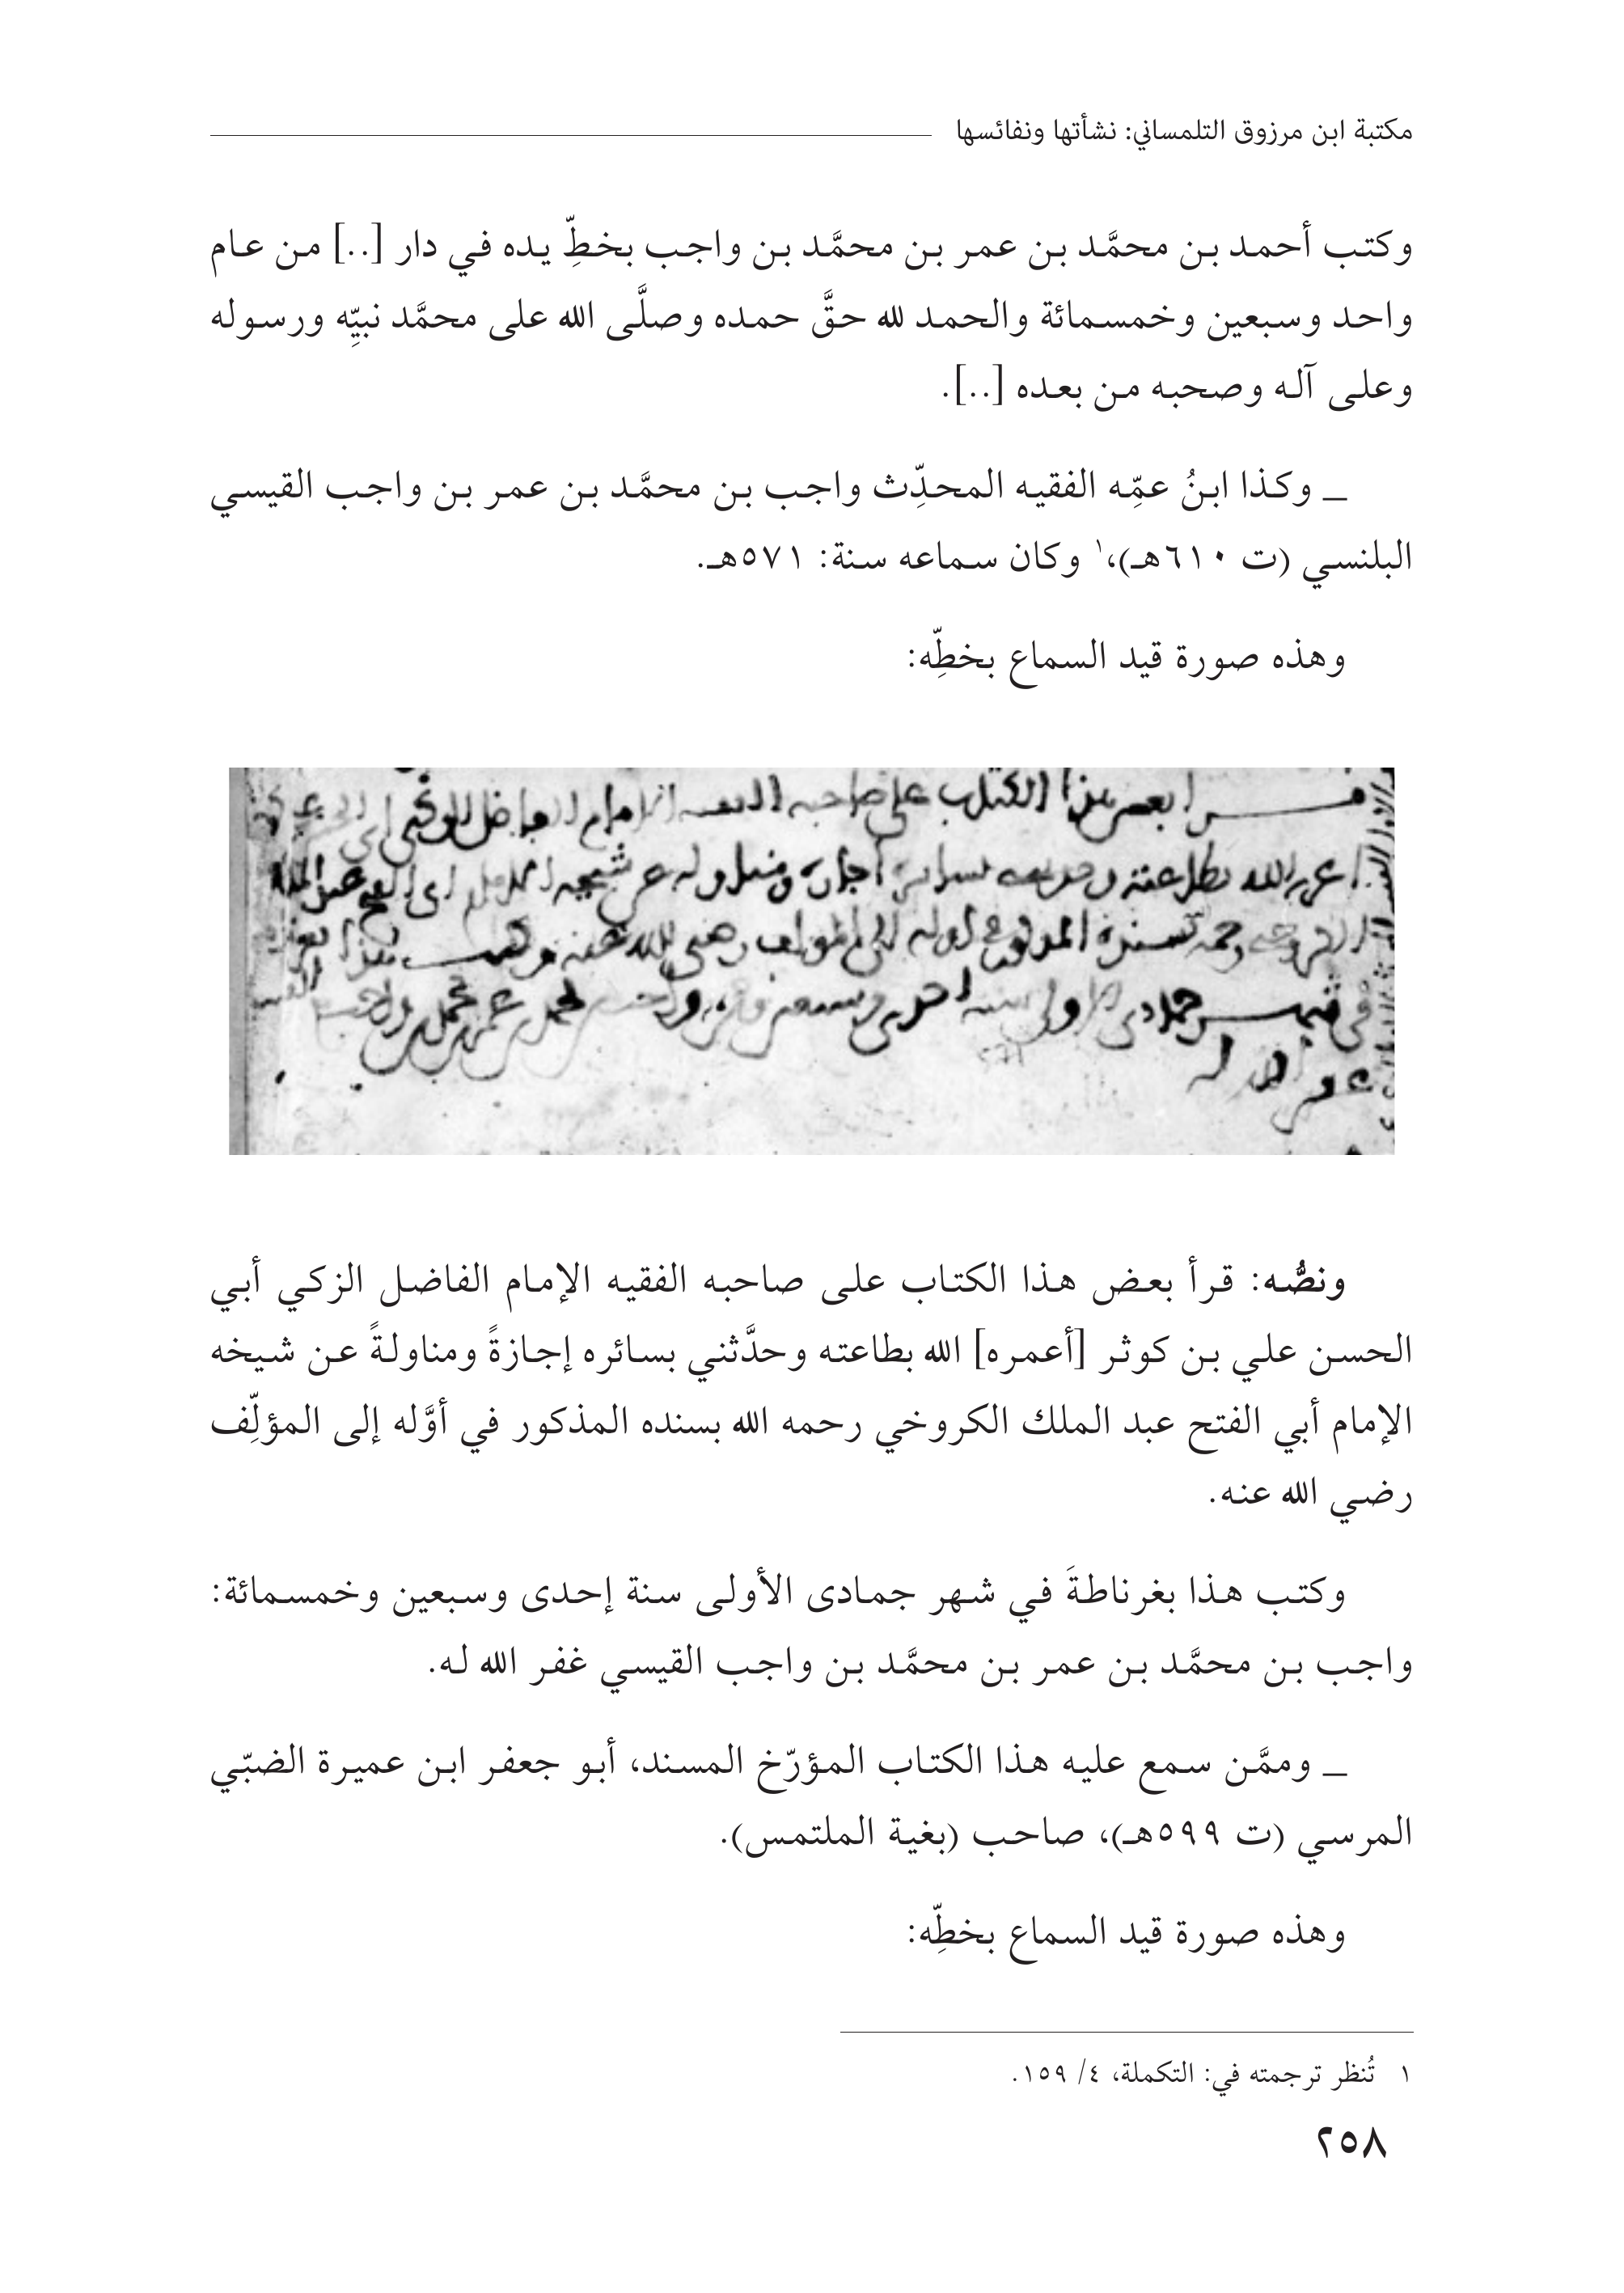 مكتبة ابن مرزوق التلمساني: نشأتها ونفائسها
وكتب أحمد بن محمَّد بن عمر بن محمَّد بن واجب بخطِّ يده في دار [..] من عام
واحد وسبعين وخمسمائة والحمد لله حقَّ حمده وصلَّى الله على محمَّد نبيِّه ورسوله
وعلى آله وصحبه من بعده [..].
_ وكذا ابنُ عمِّه الفقيه المحدِّث واجب بن محمَّد بن عمر بن واجب القيسي
البلنسي (ت ٦١٠هـ)،١ وكان سماعه سنة: ٥٧١هـ.
وهذه صورة قيد السماع بخطِّه:
هذا الكتاب على صاحبه
شيخه
رضي الله عنه
ونصُّه: قرأ بعض هذا الكتاب على صاحبه الفقيه الإمام الفاضل الزكي أبي
الحسن علي بن كوثر [أعمره] الله بطاعته وحدَّثني بسائره إجازةً ومناولةً عن شيخه
الإمام أبي الفتح عبد الملك الكروخي رحمه الله بسنده المذكور في أوَّله إلى المؤلِّف
رضي الله عنه.
وكتب هذا بغرناطةَ في شهر جمادى الأولى سنة إحدى وسبعين وخمسمائة:
واجب بن محمَّد بن عمر بن محمَّد بن واجب القيسي غفر الله له.
_ وممَّن سمع عليه هذا الكتاب المؤرّخ المسند، أبو جعفر ابن عميرة الضبّي
المرسي (ت ٥٩٩هـ)، صاحب (بغية الملتمس).
وهذه صورة قيد السماع بخطِّه:
١ تُنظر ترجمته في: التكملة، ٤/ ١٥٩.
٢٥٨